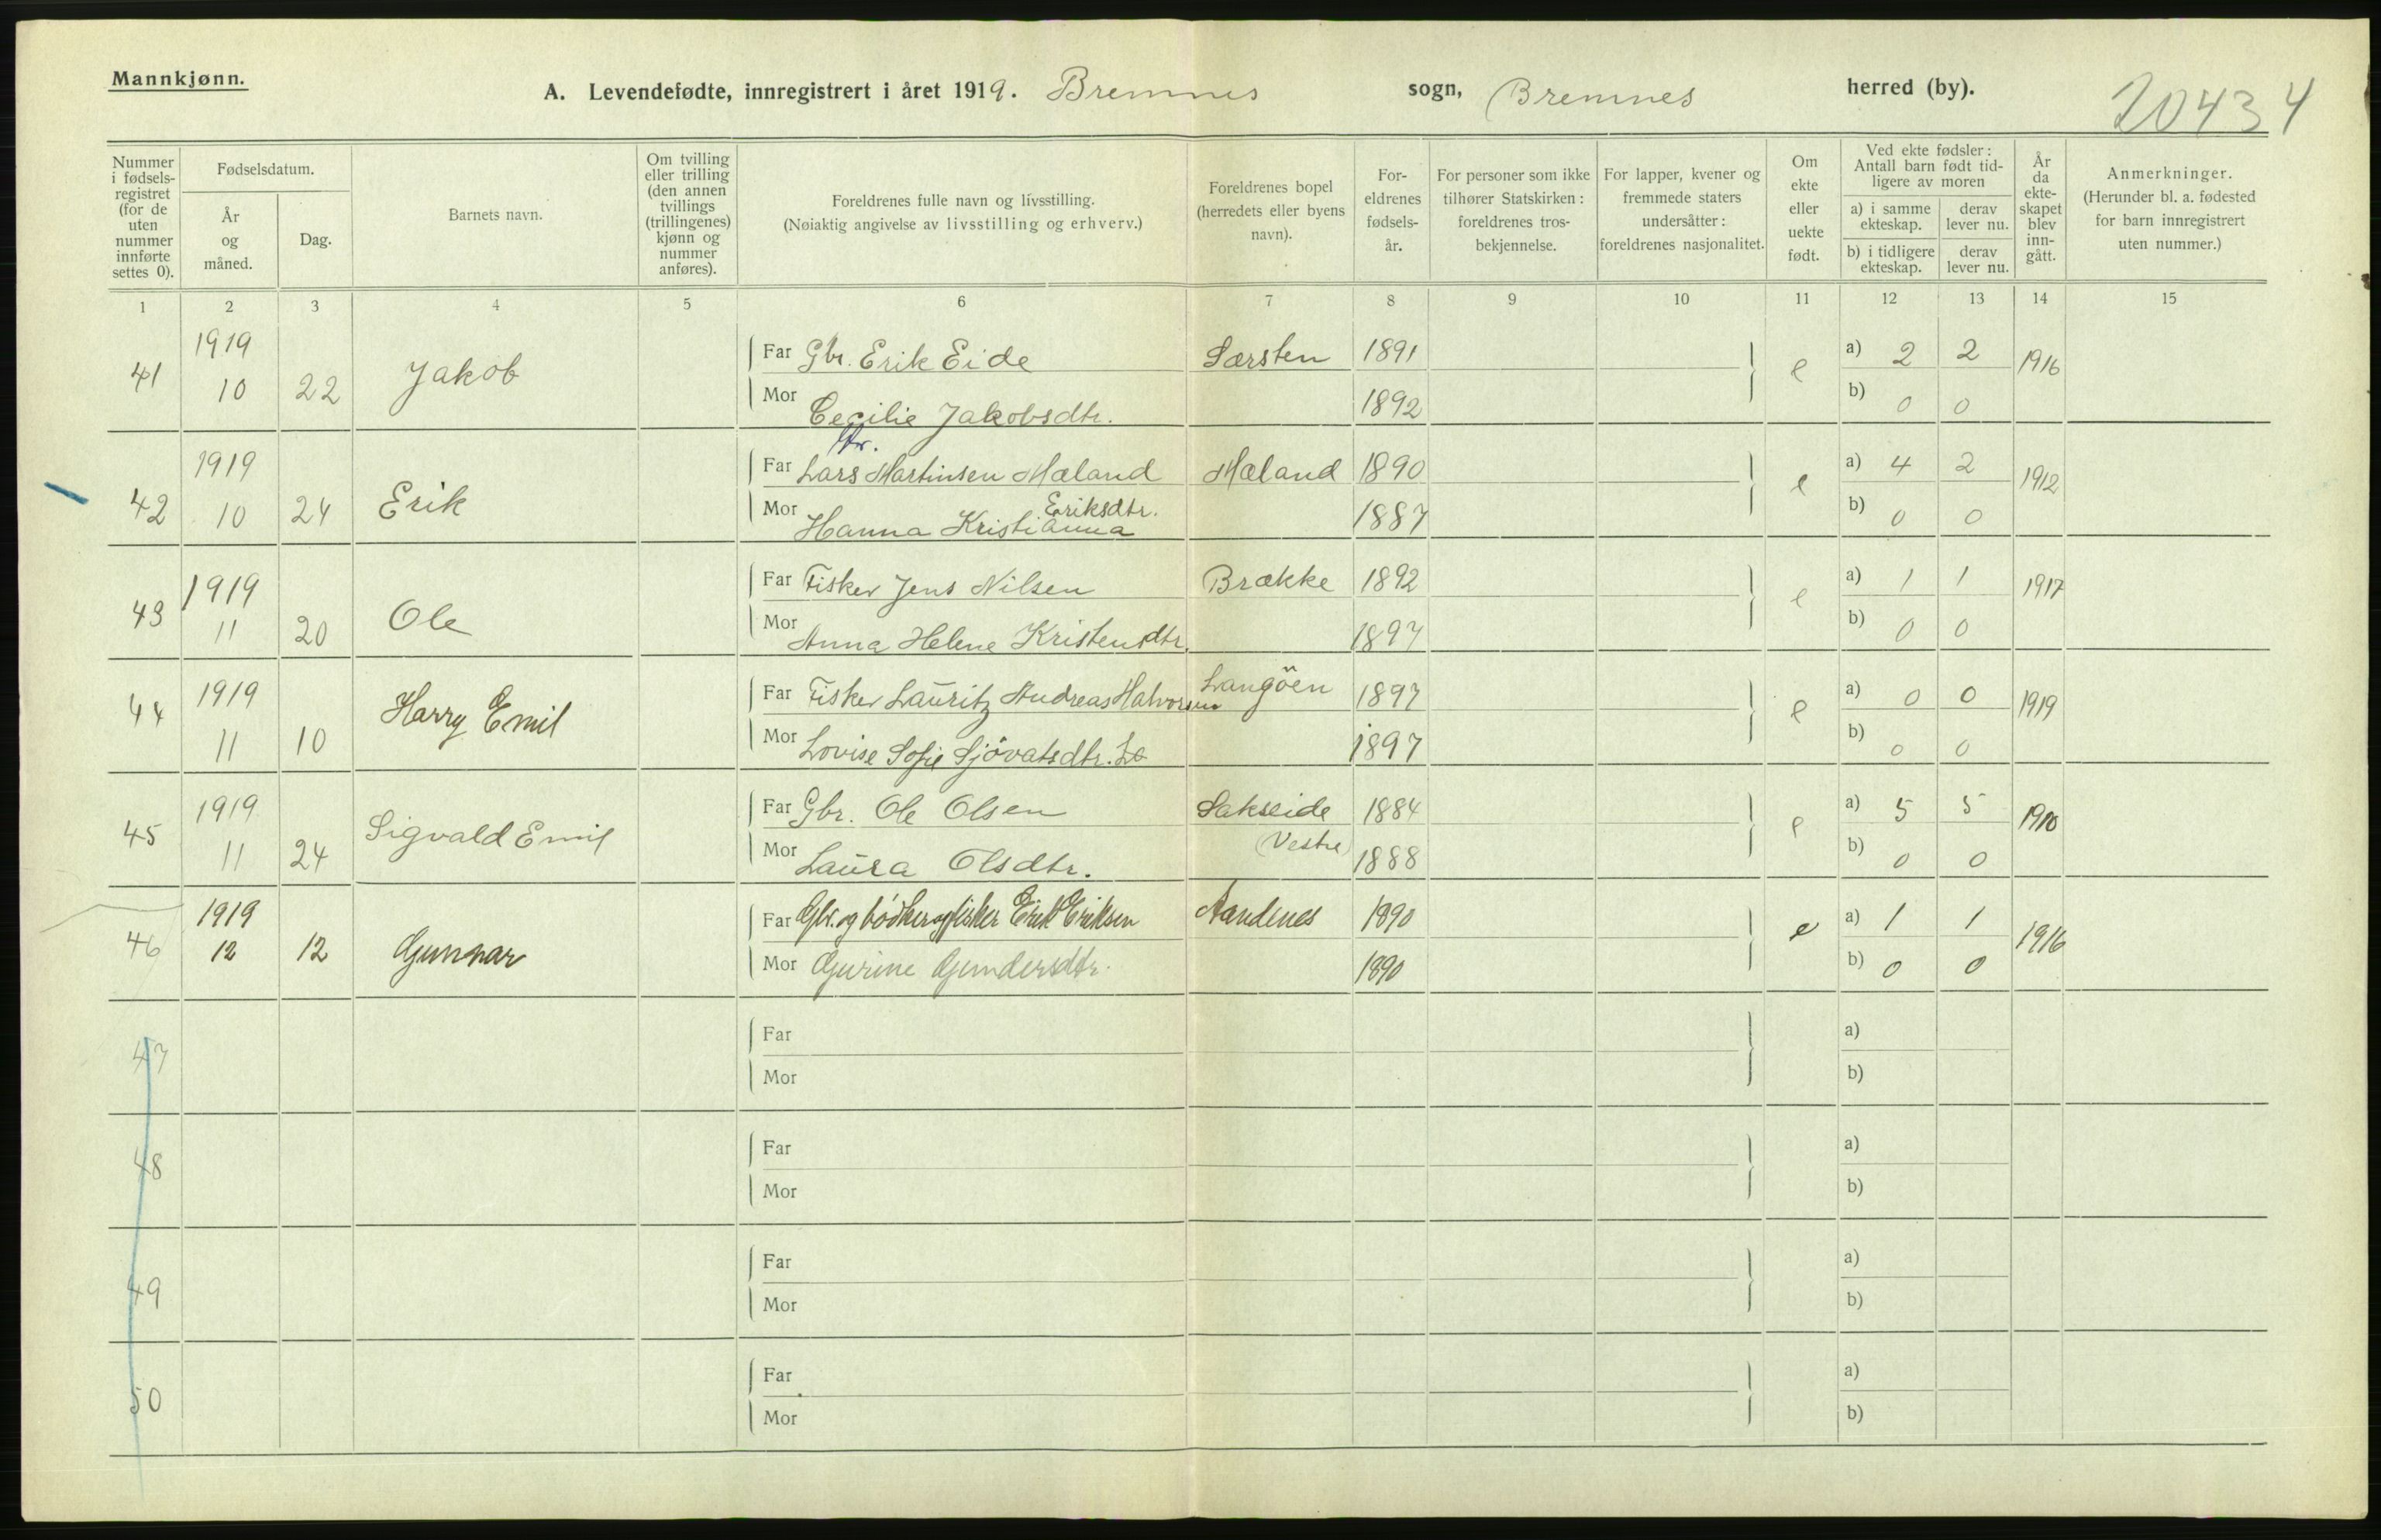 Mannkjønn.
A. Levendefødte, innregistrert i året 1919. Bremnes sogn, Bremnes herred (by).
20434
Nummer i fødselsregistret (for de uten nummer innførte settes 0).
Fødselsdatum.
År og måned.
Dag.
Barnets navn.
Om tvilling eller trilling (den annen tvillings (trillingenes) kjønn og nummer anføres).
Foreldrenes fulle navn og livsstilling.
(Nøiaktig angivelse av livsstilling og erhverv.)
Foreldrenes bopel (herredets eller byens navn).
For-eldrenes fødsels-år.
For personer som ikke tilhører Statskirken: foreldrenes tros-bekjennelse.
For lapper, kvener og fremmede staters undersåtter: foreldrenes nasjonalitet.
Om ekte eller uekte født.
Ved ekte fødsler: Antall barn født tid-ligere av moren
a) i samme ekteskap.
derav lever nu.
b) i tidligere ekteskap.
derav lever nu.
År da ekte-skapet blev inn-gått.
Anmerkninger.
(Herunder bl. a. fødested for barn innregistrert uten nummer.)
1 2 3 4 5 6 7 8 9 10 11 12 13 14 15
41 1919 10 22 Jakob Far Gbr. Erik Eide Særsten 1891 e a) 2 2 1916
Mor Cecilie Jakobsdtr. 1892 b) 0 0
42 1919 10 24 Erik Far Lars Martinsen Mæland Mæland 1890 e a) 4 2 1912
Mor Hanna Kristianna Eriksdtr. 1887 b) 0 0
43 1919 11 20 Ole Far Fisker Jens Nilsen Brække 1892 e a) 1 1 1917
Mor Anna Helene Kristensdtr. 1897 b) 0 0
44 1919 11 10 Harry Emil Far Fisker Lauritz Andreas Halvorsen Langöen 1897 e a) 0 0 1919
Mor Lovise Sofie Sjövatsdtr. 1897 b) 0 0
45 1919 11 24 Sigvald Emil Far Gbr. Ole Olsen Sakseide 1884 e a) 5 5 1910
Mor Laura Olsdtr. (Vestre) 1888 b) 0 0
46 1919 12 12 Gunnar Far Gbr. og bödker og fisker Erik Eriksen Aandenes 1890 e a) 1 1 1916
Mor Gurine Gundersdtr. 1890 b) 0 0
47 Far a)
Mor b)
48 Far a)
Mor b)
49 Far a)
Mor b)
50 Far a)
Mor b)